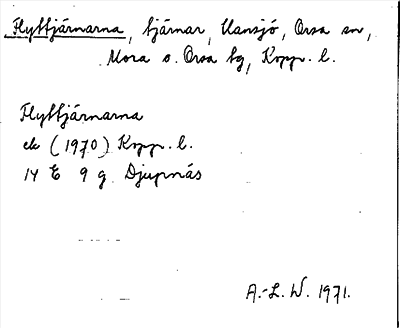 Flyttjärnarna, tjärnar, Hansjö, Orsa sn,
Mora o. Orsa tg, Kopp. l.
Flyttjärnarna
ek (1970) Kopp. l.
14 E 9 g Djupnäs
A.-L. W. 1971.